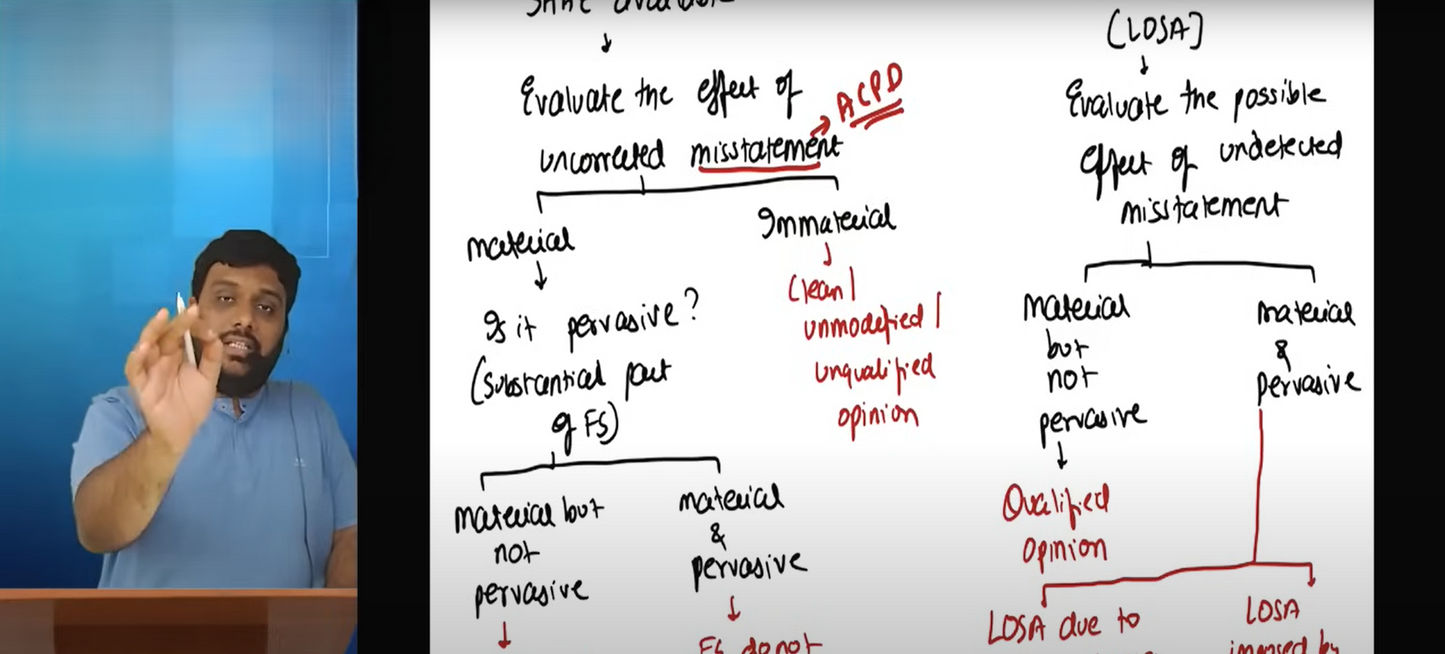 Evaluate the effect of
uncorrected misstatement
ACPD
material
Immaterial
Is it pervasive?
(Substantial part
of FS)
Clean/
unmodified/
unqualified
opinion
material but
not
pervasive
material
&
pervasive
FS do not
(LOSA]
Evaluate the possible
effect of undetected
misstatement
Material
but
not
pervasive
Qualified
Opinion
material
&
pervasive
LOSA due to
LOSA
imposed by